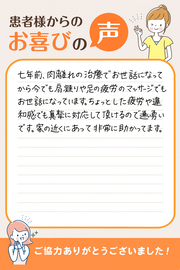 患者様からの
お喜びの声
七年前、肉離れの治療でお世話になって
から今でも肩凝りや足の疲労のマッサージでも
お世話になっています。ちょっとした疲労や違
和感でも真摯に対応して頂けるので通易い
です。家の近くにあって非常に助かってます。
ご協力ありがとうございました！